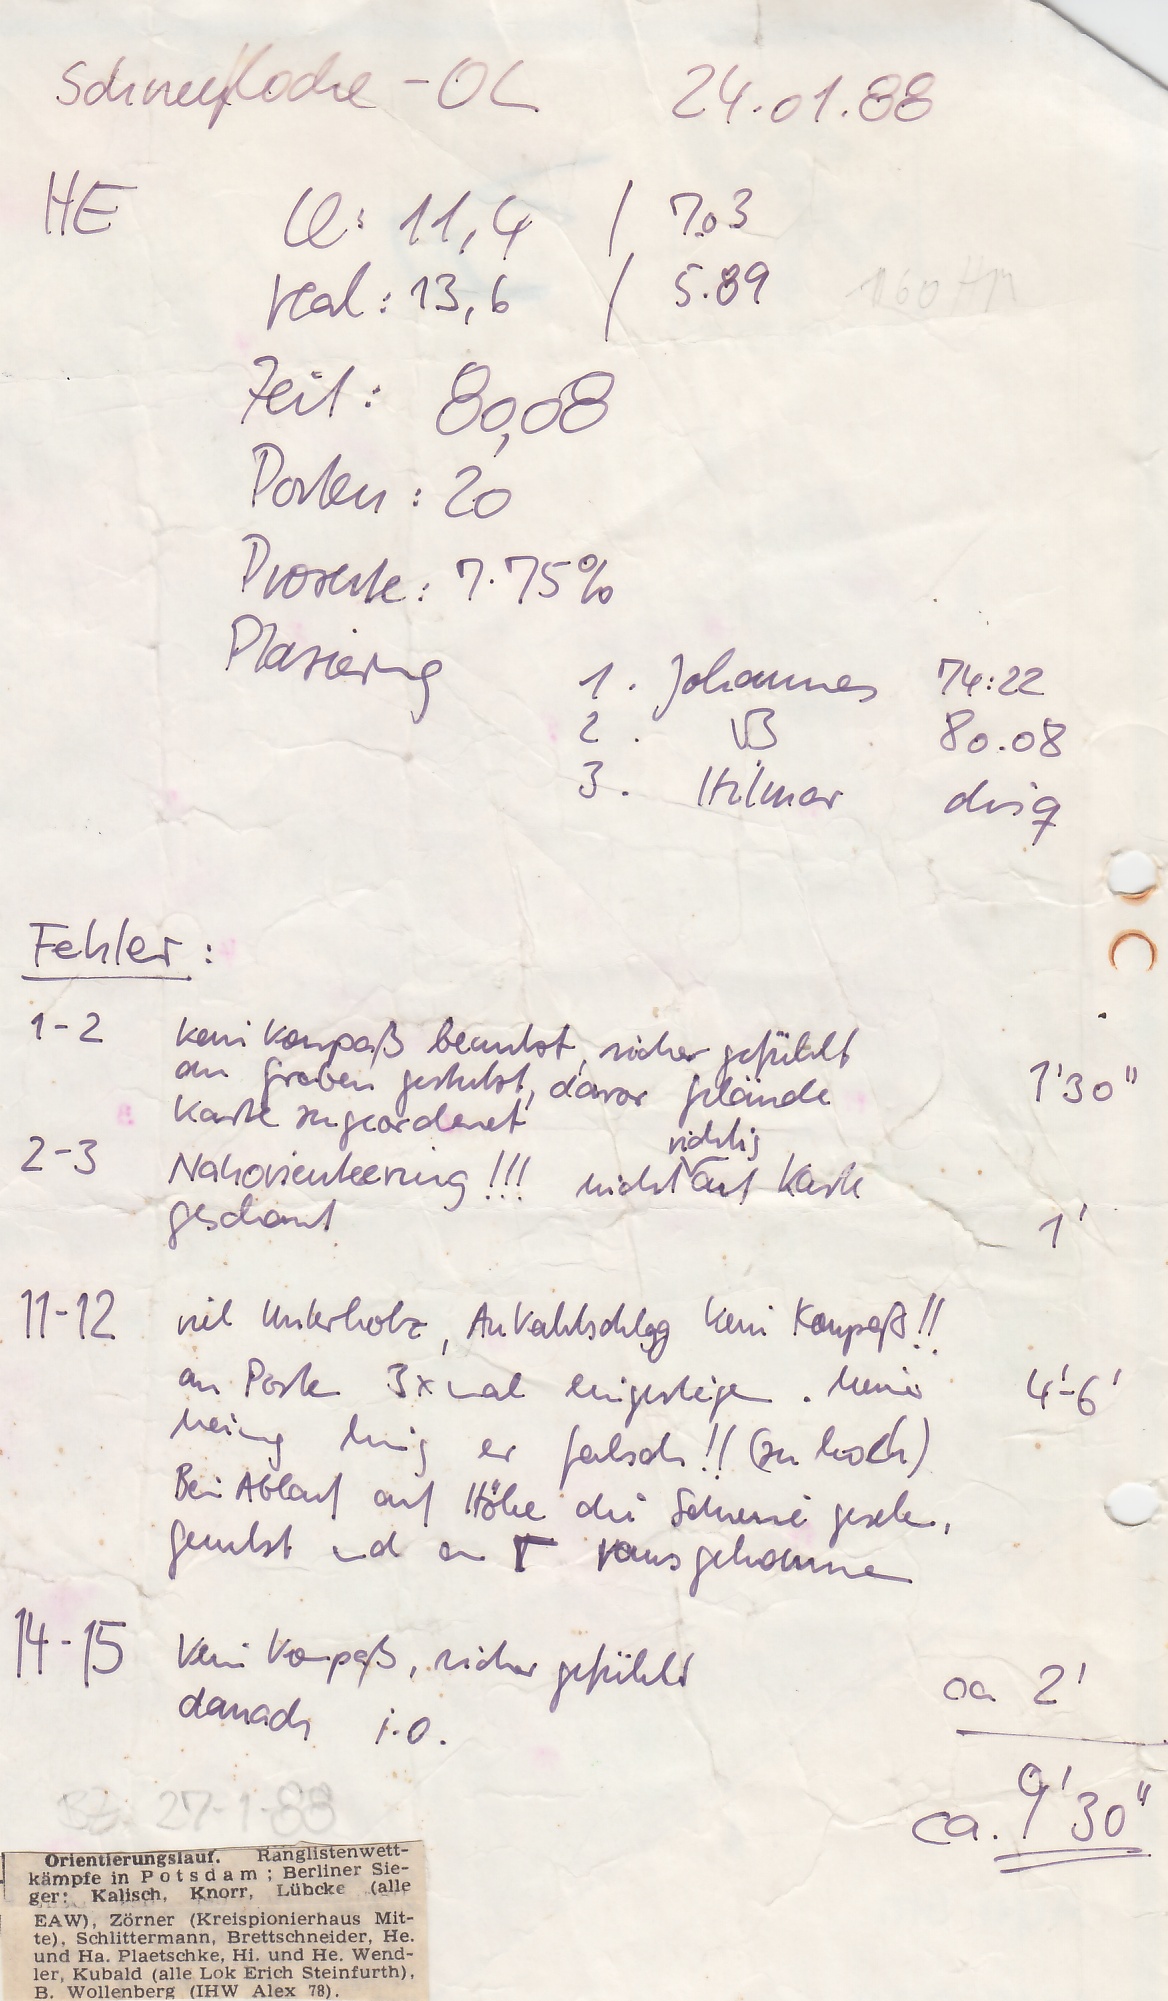 Schneeflocke - OL 24.01.88
HE
: 11,4 / 7.03
real: 13,6 / 5.89 160 HM
Zeit: 80,08
Posten: 20
Prozente: 7.75%
Plazierung
1. Johannes 74:22
2. VB 80.08
3. Hilmar disq
Fehler:
1-2 kein Kompaß benutzt, sicher gefühlt
am Graben gestutzt, davor Gelände
Karte zugeordenet 1'30"
2-3 Nahorientierung!!! nicht richtig auf Karte
geschaut 1'
11-12 viel Unterholz, Ankahlschlag kein Kompaß!!
an Posten 3x mal eingestiegen. Meiner 4'-6'
Meinung hing er falsch!! (zu hoch)
Bei Ablauf auf Höhe die Schneise gesehen,
genutzt und an rausgekommen
14-15 Kein Kompaß, sicher gefühlt
danach i.O. ca 2'
ca. 9'30"
BZ: 27-1-88
Orientierungslauf. Ranglistenwett-
kämpfe in Potsdam; Berliner Sie-
ger: Kalisch, Knorr, Lübcke (alle
EAW), Zörner (Kreispionierhaus Mit-
te), Schlittermann, Brettschneider, He.
und Ha. Plaetschke, Hi. und He. Wend-
ler, Kubald (alle Lok Erich Steinfurth),
B. Wollenberg (IHW Alex 78).